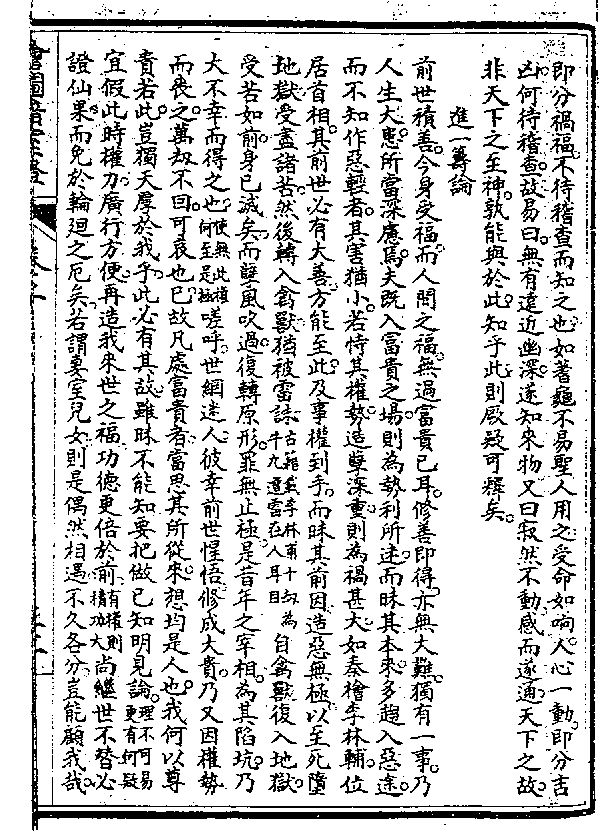 即分禍福不待稽查而知之也如蓍龜不易聖人用之受命如响人心一動即分吉
凶何待稽查故易曰無有遠近幽深遂知來物又曰寂然不動感而遂通天下之故
非天下之至神孰能與於此知乎此則厥疑可釋矣
進一籌論
前世積善今身受福而人間之福無過富貴已耳修善即得亦無大難獨有一事乃
人生大患所當深慮焉夫既入富貴之場則為勢利所迷而昧其本來多趨入惡途
而不知作惡輕者其害猶小若恃其權勢造孽深重則為禍甚大如秦檜李林輔位
居首相其前世必有大善方能至此及事權到手而昧其前因造惡無極以至死墮
地獄受盡諸苦然後轉入禽獸猶被雷誅古籍載李林甫十世為牛九遭雷在人耳目自禽獸復入地獄
受苦如前身已滅矣而孽風吹過復轉原形罪無止極是昔年之宰相為其陷坑乃
大不幸而得之也使無此權何至是極嗟呼世網迷人彼幸前世惺悟修成大貴乃又因權勢
而喪之萬劫不回可哀也已故凡處富貴者當思其所從來想均是人也我何以尊
貴若此豈獨天厚於我乎此必有其故雖昧不能知要把做已知明見論理不可易更有何疑
宜假此時權力廣行方便再造我來世之福功德更倍於前有權則積功大尚繼世不替必
證仙果而免於輪廻之厄矣若謂妻室兒女則是偶然相遇不久各分豈能顧我哉